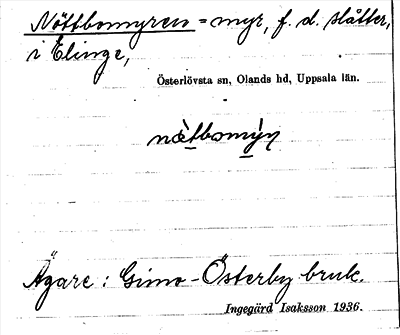 Nöttbomyren = myr, f. d. slåtter,
i Elinge,
Österlövsta sn, Olands hd, Uppsala län.
nœ̀tbomỳn
Ägare: Gimo-Österby bruk.
Ingegärd Isaksson 1936.